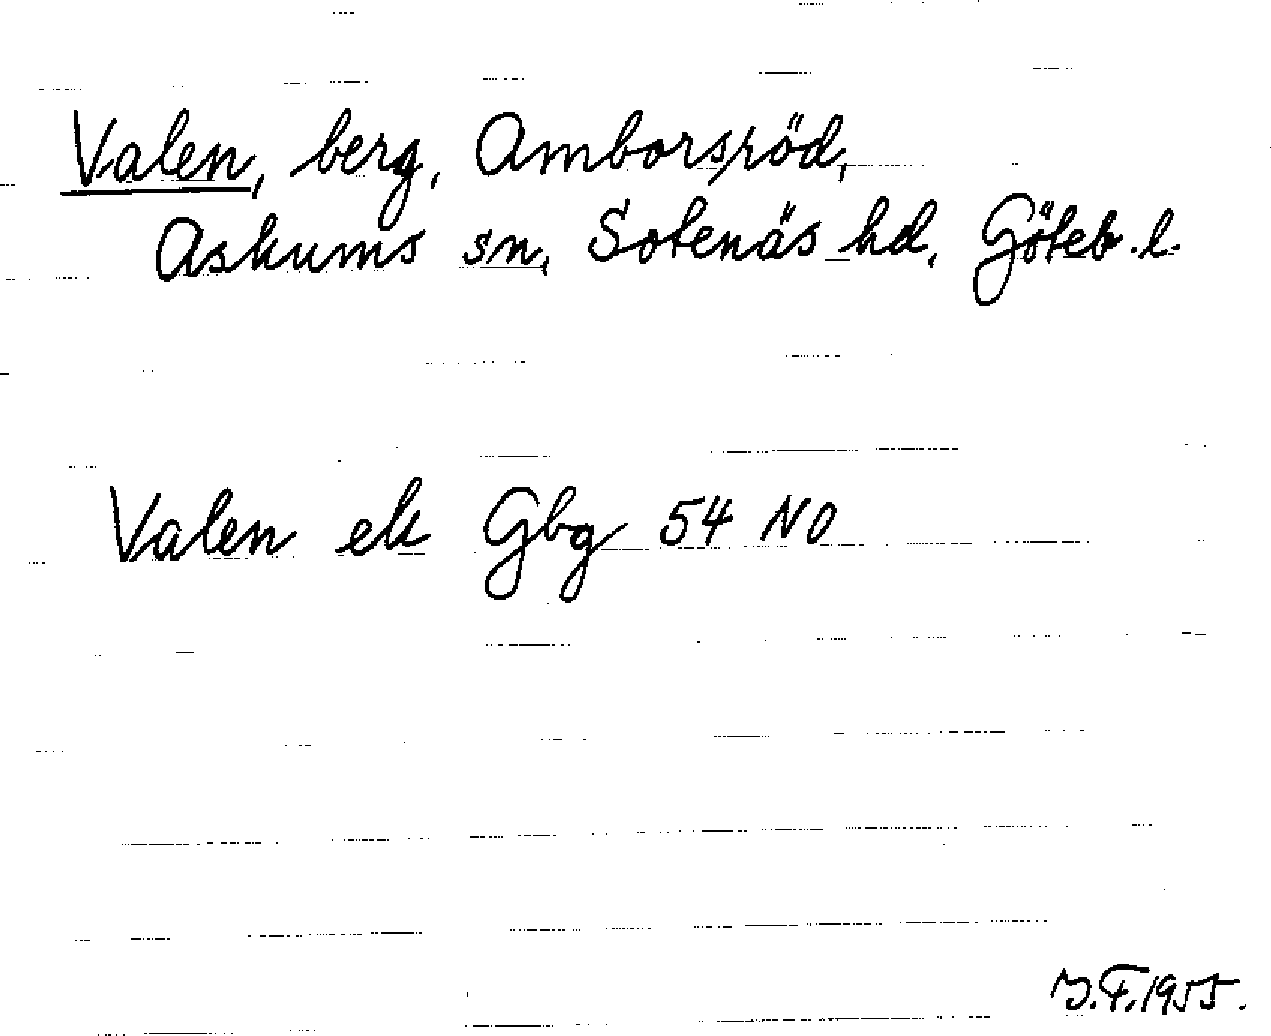 Valen, berg, Amborsröd,
Askums sn, Sotenäs hd, Göteb. l.
Valen ek Gbg 54 NO
J.F. 1955.